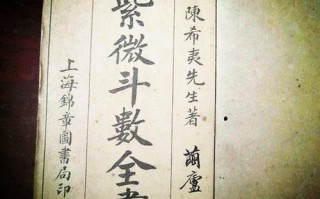 陳希夷先生著 蘭廬
紫微斗數全書
上海錦章圖書局印